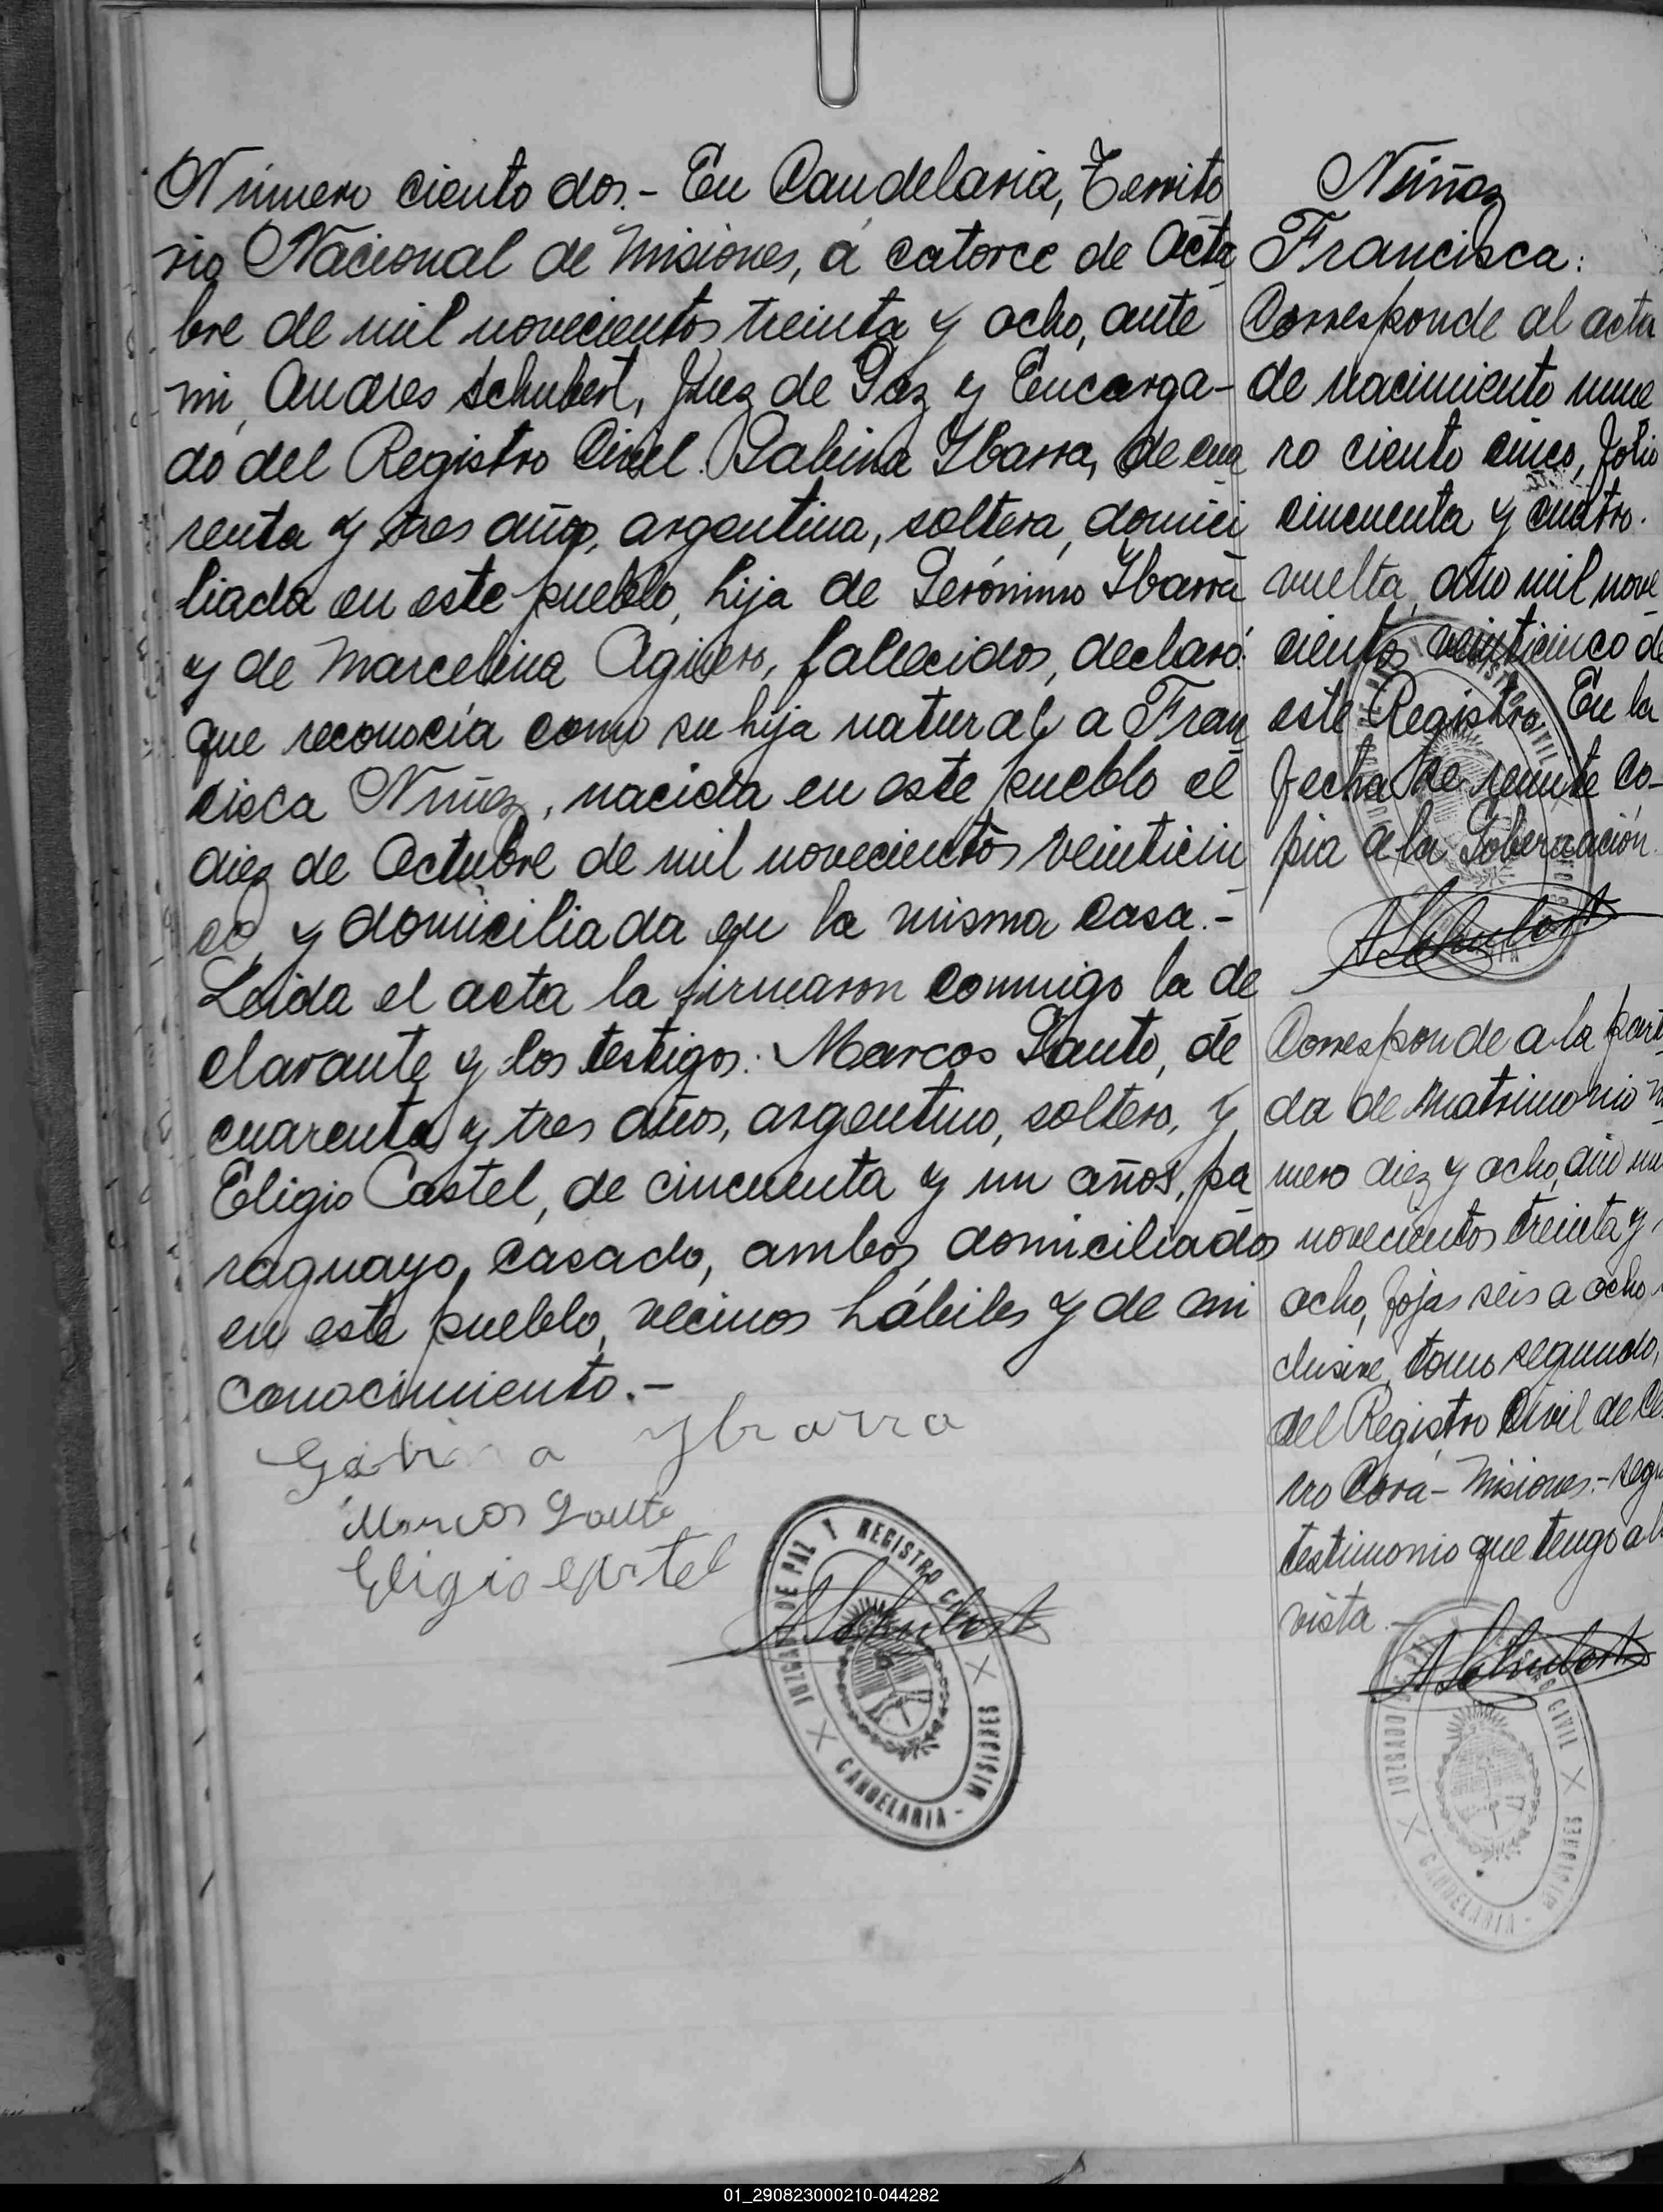 Número ciento dos.- En Candelaria, Territo
rio Nacional de Misiones, á catorce de Octu
bre de mil novecientos treinta y ocho, ante
mi, Andres Schubert, Juez de Paz y Encarga-
do del Registro Civil. Gabina Ybarra, de cua
renta y tres años, argentina, soltera, domici
liada en este pueblo, hija de Gerónimo Ybarra
y de Marcelina Agüero, fallecidos, declaró:
que reconocía como su hija natural, a Fran
cisca Nuñez, nacida en este pueblo el
diez de Octubre de mil novecientos veinticin
co, y domiciliada en la misma casa.-
Leida el acta la firmaron conmigo la de
clarante y los testigos: Marcos Gauto, de
cuarenta y tres años, argentino, soltero, y
Eligio Castel, de cincuenta y un años, pa
raguayo, casado, ambos domiciliados
en este pueblo, vecinos hábiles y de mi
conocimiento.-
Gabina Ybarra
Marcos Gauto
Eligio
ASchubert
JUZGADO DE PAZ Y REGISTRO CIVIL
CANDELARIA - MISIONES
Núñez
Francisca:
Corresponde al acta
de nacimiento nume
ro ciento cinco, folio
cincuenta y cuatro
vuelta, año mil nove
cientos veinticinco de
este Registro. En la
fecha se remite co-
pia a la Gobernación.
ASchubert
Corresponde a la parti
da de matrimonio nu
mero diez y ocho, año mil
novecientos treinta y
ocho, fojas seis a ocho
clusive, tomo segundo,
del Registro Civil de Ce
rro Corá - Misiones.- segun
testimonio que tengo a la
vista.-
ASchubert
JUZGADO DE PAZ Y REGISTRO CIVIL
CANDELARIA - MISIONES
01_290823000210-044282